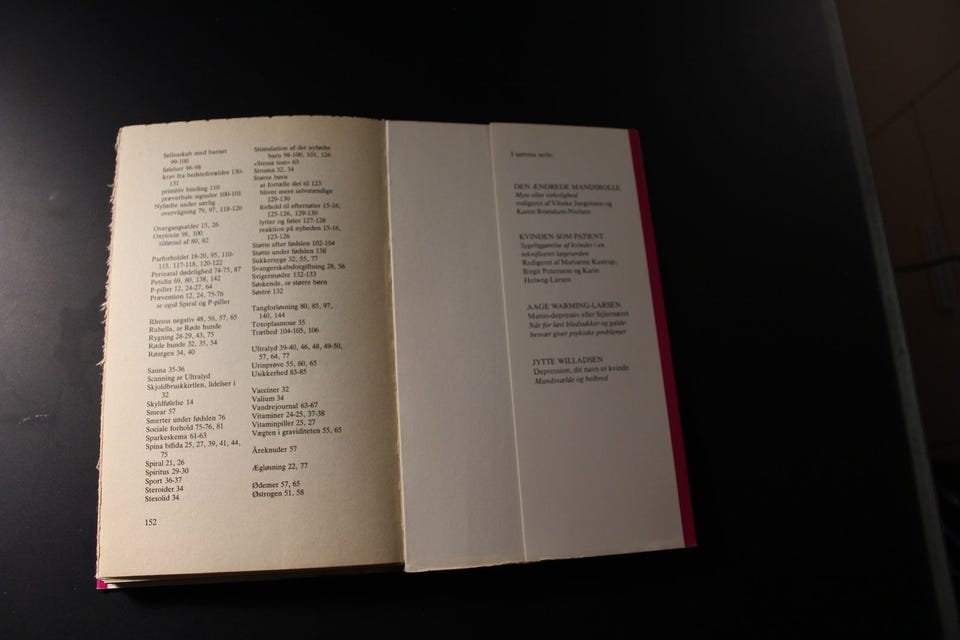 fællesskab med barnet
99-100
følelser 96-98
krav fra bedsteforældre 130-
131
primitiv binding 110
præverbale signaler 100-101
Nyfødte under særlig
overvågning 79, 97, 118-120
Overgangsalder 15, 26
Oxytocin 98, 100
tilførsel af 80, 82
Parforholdet 18-20, 95, 110-
115, 117-118, 120-122
Perinatal dødelighed 74-75, 87
Petidin 69, 80, 138, 142
P-piller 12, 24-27, 64
Prævention 12, 24, 75-76
se også Spiral og P-piller
Rhesus negativ 48, 56, 57, 65
Rubella, se Røde hunde
Rygning 28-29, 43, 75
Røde hunde 32, 35, 54
Røntgen 34, 40
Sauna 35-36
Scanning se Ultralyd
Skjoldbruskkirtlen, lidelser i
32
Skyldfølelse 14
Smear 57
Smerter under fødslen 76
Sociale forhold 75-76, 81
Sparkeskema 61-63
Spina bifida 25, 27, 39, 41, 44,
75
Spiral 21, 26
Spiritus 29-30
Sport 36-37
Steroider 34
Stesolid 34
152
Stimulation af det nyfødte
barn 98-100, 101, 126
«Stress test» 63
Struma 32, 34
Større børn
at fortælle det til 123
bliver mere selvstændige
129-130
forhold til efternøler 15-16,
125-126, 129-130
lytter og føler 127-128
reaktion på nyheden 15-16,
123-126
Støtte efter fødslen 102-104
Støtte under fødslen 138
Sukkersyge 32, 55, 77
Svangerskabsforgiftning 28, 56
Svigermødre 132-133
Søskende, se større børn
Søstre 132
Tangforløsning 80, 85, 97,
140, 144
Toxoplasmose 35
Træthed 104-105, 106
Ultralyd 39-40, 46, 48, 49-50,
57, 64, 77
Urinprøve 55, 60, 65
Usikkerhed 83-85
Vacciner 32
Valium 34
Vandrejournal 63-67
Vitaminer 24-25, 37-38
Vitaminpiller 25, 27
Vægten i graviditeten 55, 65
Åreknuder 57
Ægløsning 22, 77
Ødemer 57, 65
Østrogen 51, 58
I samme serie:
DEN ÆNDREDE MANDSROLLE
Myte eller virkelighed
redigeret af Vibeke Jørgensen og
Karen Brøndum-Nielsen
KVINDEN SOM PATIENT
Sygeliggørelse af kvinder i en
teknificeret lægeverden
Redigeret af Marianne Kastrup,
Birgit Petersson og Karin
Helweg-Larsen
AAGE WARMING-LARSEN
Manio-depressiv eller fejlernæret
Når for lavt blodsukker og galde-
besvær giver psykiske problemer
JYTTE WILLADSEN
Depression, dit navn er kvinde
Mandsvælde og helbred